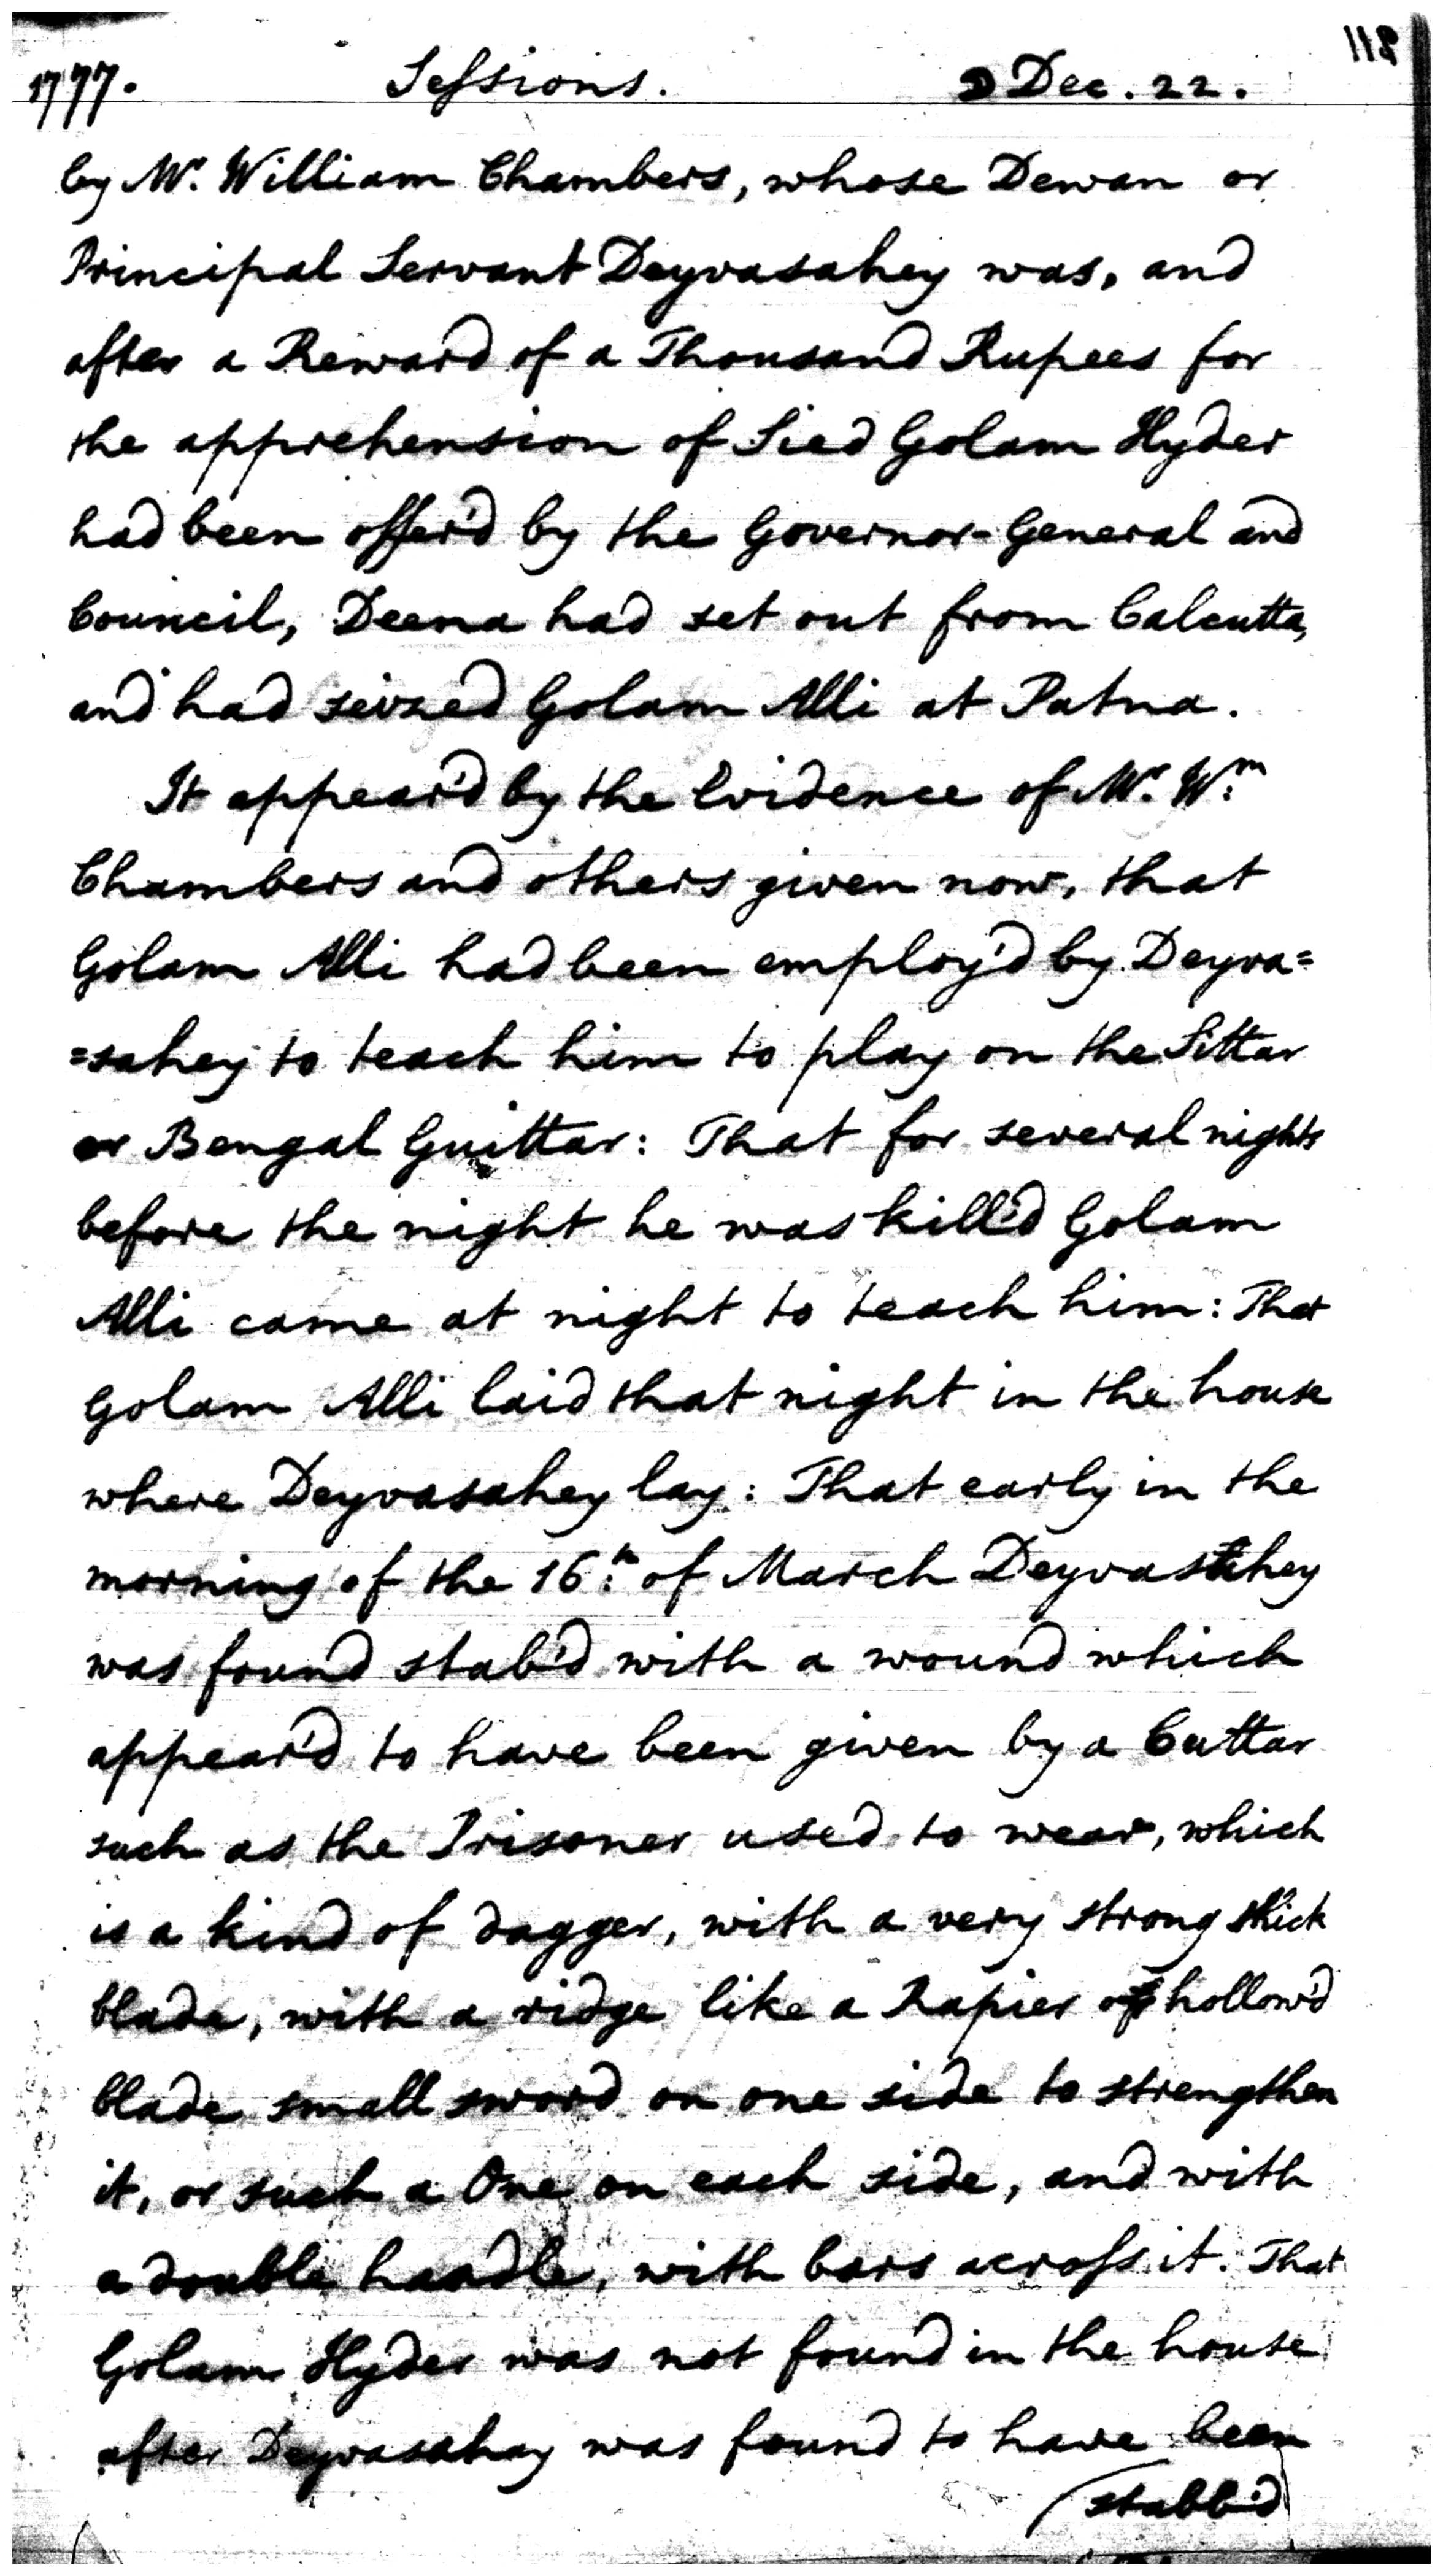 1777. Sessions. ☽ Dec. 22.
by Mr. William Chambers, whose Dewan or
Principal Servant Deyvasahey was, and
after a Reward of a Thousand Rupees for
the apprehension of Sied Golam Hyder
had been offer'd by the Governor-General and
Council, Deena had set out from Calcutta,
and had seized Golam Alli at Patna.
It appear'd by the Evidence of Mr. Wm.
Chambers and others given now, that
Golam Alli had been employ'd by Deyva=
=sahey to teach him to play on the Sittar
or Bengal Guittar: That for several nights
before the night he was kill'd Golam
Alli came at night to teach him: That
Golam Alli laid that night in the house
where Deyvasahey lay: That early in the
morning of the 16th. of March Deyvasahey
was found stab'd with a wound which
appear'd to have been given by a Cuttar
such as the Prisoner used to wear, which
is a kind of dagger, with a very strong thick
blade, with a ridge like a Rapier or hollow'd
blade small sword on one side to strengthen
it, or such a One on each side, and with
a double handle, with bars across it. That
Golam Hyder was not found in the house
after Deyvasahey was found to have been
stabb'd